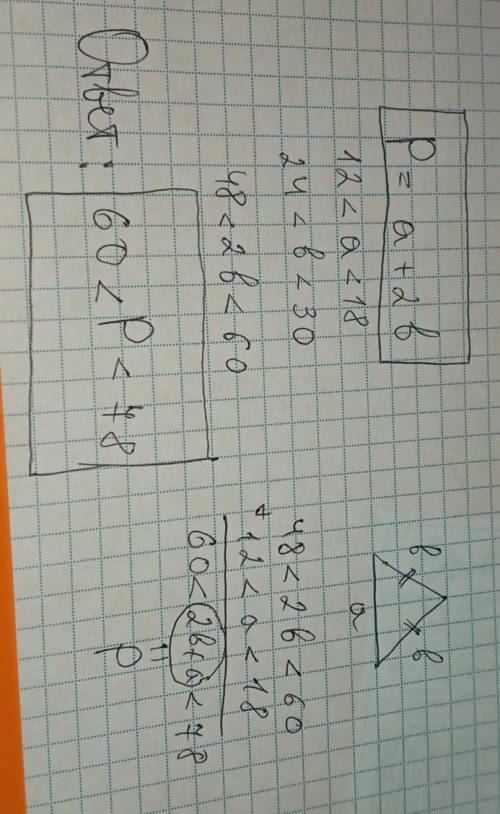 P = a + 2b
12 < a < 18
24 < b < 30
48 < 2b < 60
b b
a
48 < 2b < 60
+
12 < a < 18
60 < 2b+a < 78
=
P
Ответ: 60 < P < 78